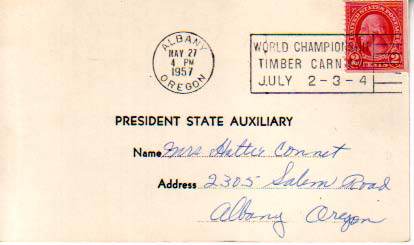 ALBANY
MAY 27
4 PM
1957
OREGON
WORLD CHAMPIONSHIP
TIMBER CARN
JULY 2-3-4
2 2
PRESIDENT STATE AUXILIARY
Name Mrs Hattie Connet
Address 2305 Salem Road
Albany Oregon